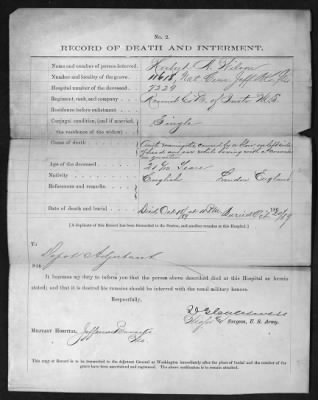 No. 2.
RECORD OF DEATH AND INTERMENT.
Name and number of person interred, Herbert A. Wilson
Number and locality of the grave, 11618, Nat Cem Jeff Bks Mo
Hospital number of the deceased, 7329
Regiment, rank, and company, Recruit
Residence before enlistment,
Conjugal condition, (and if married,
the residence of the widow) Single
Cause of death, Acute meningitis caused by a blow on left side
of head and ear while boxing with a
in quarters
Age of the deceased, 21 Years
Nativity, English London England
References and remarks,
Date of death and burial, Died Oct at Buried Oct
(A duplicate of this Record has been forwarded to the Sexton, and another remains at this Hospital.)
To
Depot Adjutant
Sir:
It becomes my duty to inform you that the person above described died at this Hospital as herein
stated; and that it is desired his remains should be interred with the usual military honors.
Respectfully,
Surgeon, U. S. Army.
Military Hospital, Jefferson Barracks
Mo.
This copy of Record is to be forwarded to the Adjutant General at Washington immediately after the place of burial and the number of the
grave have been ascertained and registered.